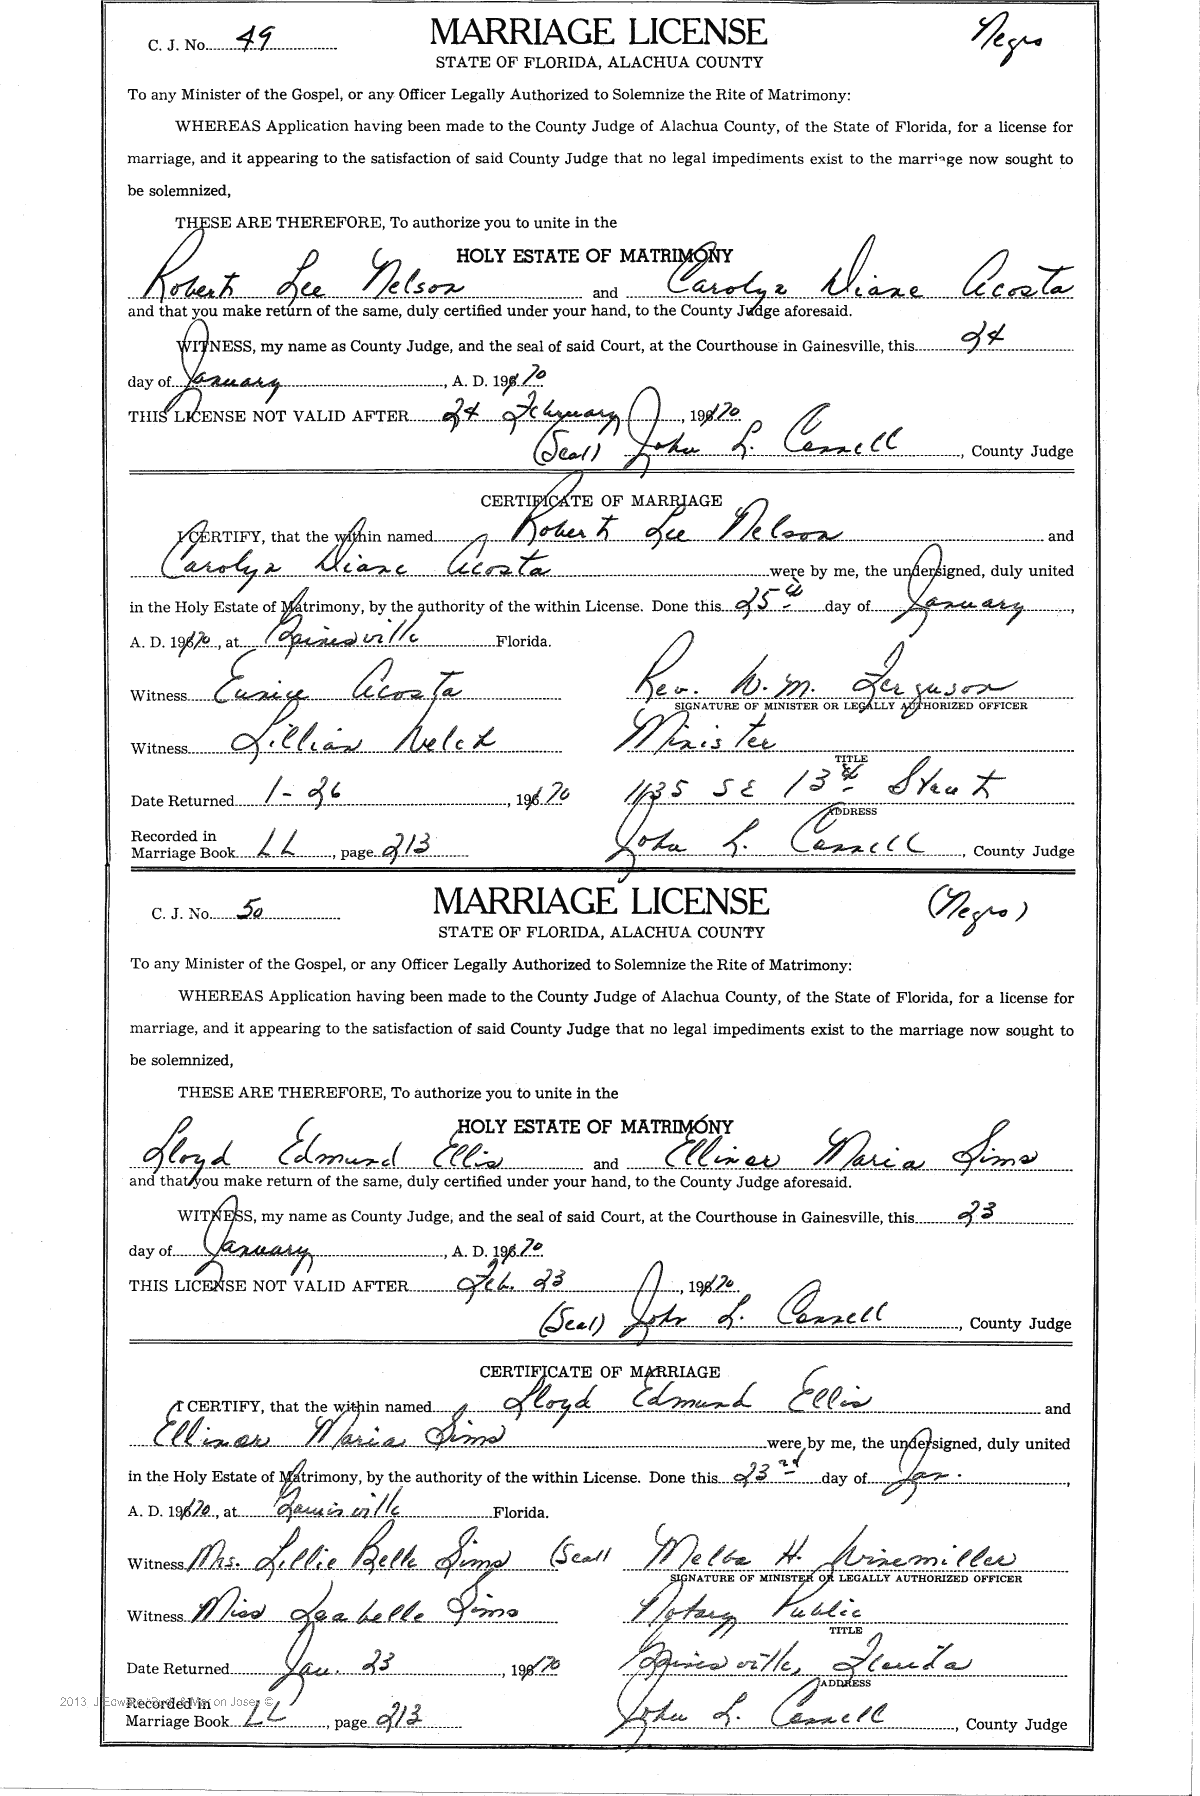 C. J. No. 49 MARRIAGE LICENSE Negro
STATE OF FLORIDA, ALACHUA COUNTY
To any Minister of the Gospel, or any Officer Legally Authorized to Solemnize the Rite of Matrimony:
WHEREAS Application having been made to the County Judge of Alachua County, of the State of Florida, for a license for
marriage, and it appearing to the satisfaction of said County Judge that no legal impediments exist to the marriage now sought to
be solemnized,
THESE ARE THEREFORE, To authorize you to unite in the
HOLY ESTATE OF MATRIMONY
Robert Lee Nelson and Carolyn Diane Acosta
and that you make return of the same, duly certified under your hand, to the County Judge aforesaid.
WITNESS, my name as County Judge, and the seal of said Court, at the Courthouse in Gainesville, this 24
day of January, A. D. 1970
THIS LICENSE NOT VALID AFTER 24 February, 1970
(Seal) John L. Connell, County Judge
CERTIFICATE OF MARRIAGE
I CERTIFY, that the within named Robert Lee Nelson and
Carolyn Diane Acosta were by me, the undersigned, duly united
in the Holy Estate of Matrimony, by the authority of the within License. Done this 25th day of January,
A. D. 1970, at Gainesville Florida.
Witness Eunice Acosta Rev. W. M. Ferguson
SIGNATURE OF MINISTER OR LEGALLY AUTHORIZED OFFICER
Witness Lillian Welch Minister
TITLE
Date Returned 1-26, 1970 1135 SE 13th Street
ADDRESS
Recorded in
Marriage Book LL, page 213 John L. Connell, County Judge
C. J. No. 50 MARRIAGE LICENSE (Negro)
STATE OF FLORIDA, ALACHUA COUNTY
To any Minister of the Gospel, or any Officer Legally Authorized to Solemnize the Rite of Matrimony:
WHEREAS Application having been made to the County Judge of Alachua County, of the State of Florida, for a license for
marriage, and it appearing to the satisfaction of said County Judge that no legal impediments exist to the marriage now sought to
be solemnized,
THESE ARE THEREFORE, To authorize you to unite in the
HOLY ESTATE OF MATRIMONY
Lloyd Edmund Ellis and Ellinor Maria Sims
and that you make return of the same, duly certified under your hand, to the County Judge aforesaid.
WITNESS, my name as County Judge, and the seal of said Court, at the Courthouse in Gainesville, this 23
day of January, A. D. 1970
THIS LICENSE NOT VALID AFTER Feb. 23, 1970
(Seal) John L. Connell, County Judge
CERTIFICATE OF MARRIAGE
I CERTIFY, that the within named Lloyd Edmund Ellis and
Ellinor Maria Sims were by me, the undersigned, duly united
in the Holy Estate of Matrimony, by the authority of the within License. Done this 23rd day of Jan.,
A. D. 1970, at Gainesville Florida.
Witness Mrs. Lillie Belle Sims (Seal) Melba H. Winemiller
SIGNATURE OF MINISTER OR LEGALLY AUTHORIZED OFFICER
Witness Miss Isabelle Sims Notary Public
TITLE
Date Returned Jan. 23, 1970 Gainesville, Florida
ADDRESS
Recorded in
Marriage Book LL, page 213 John L. Connell, County Judge